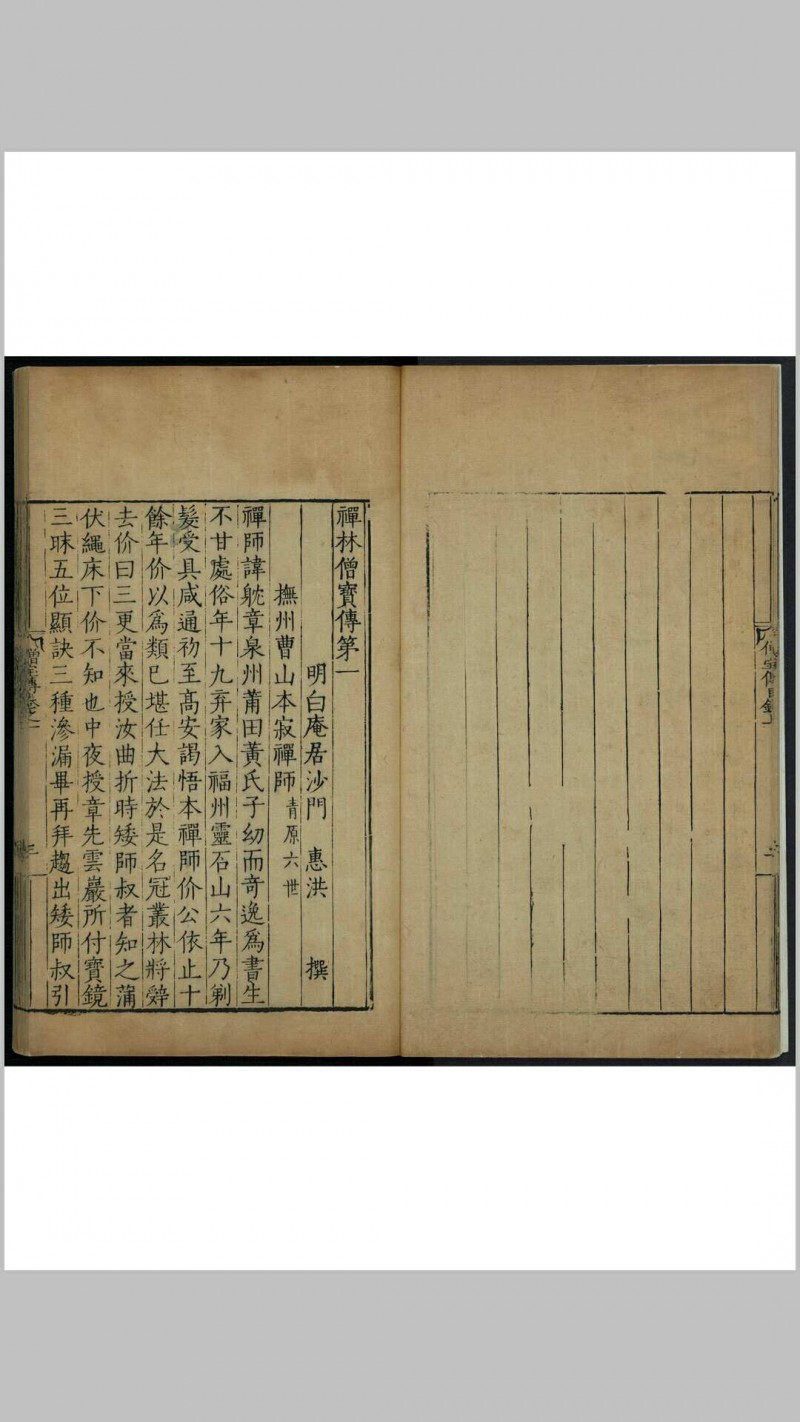 禪林僧寶傳第一
明白庵居沙門 惠洪 撰
撫州曹山本寂禪師 青原六世
禪師諱躭章泉州莆田黃氏子幼而奇逸爲書生
不甘處俗年十九弃家入福州靈石山六年乃剃
髮受具咸通初至高安謁悟本禪師价公依止十
餘年价以爲類已堪任大法於是名冠叢林將辤
去价曰三更當來授汝曲折時矮師叔者知之蒲
伏繩床下价不知也中夜授章先雲巖所付寶鏡
三昧五位顯訣三種滲漏畢再拜趨出矮師叔引